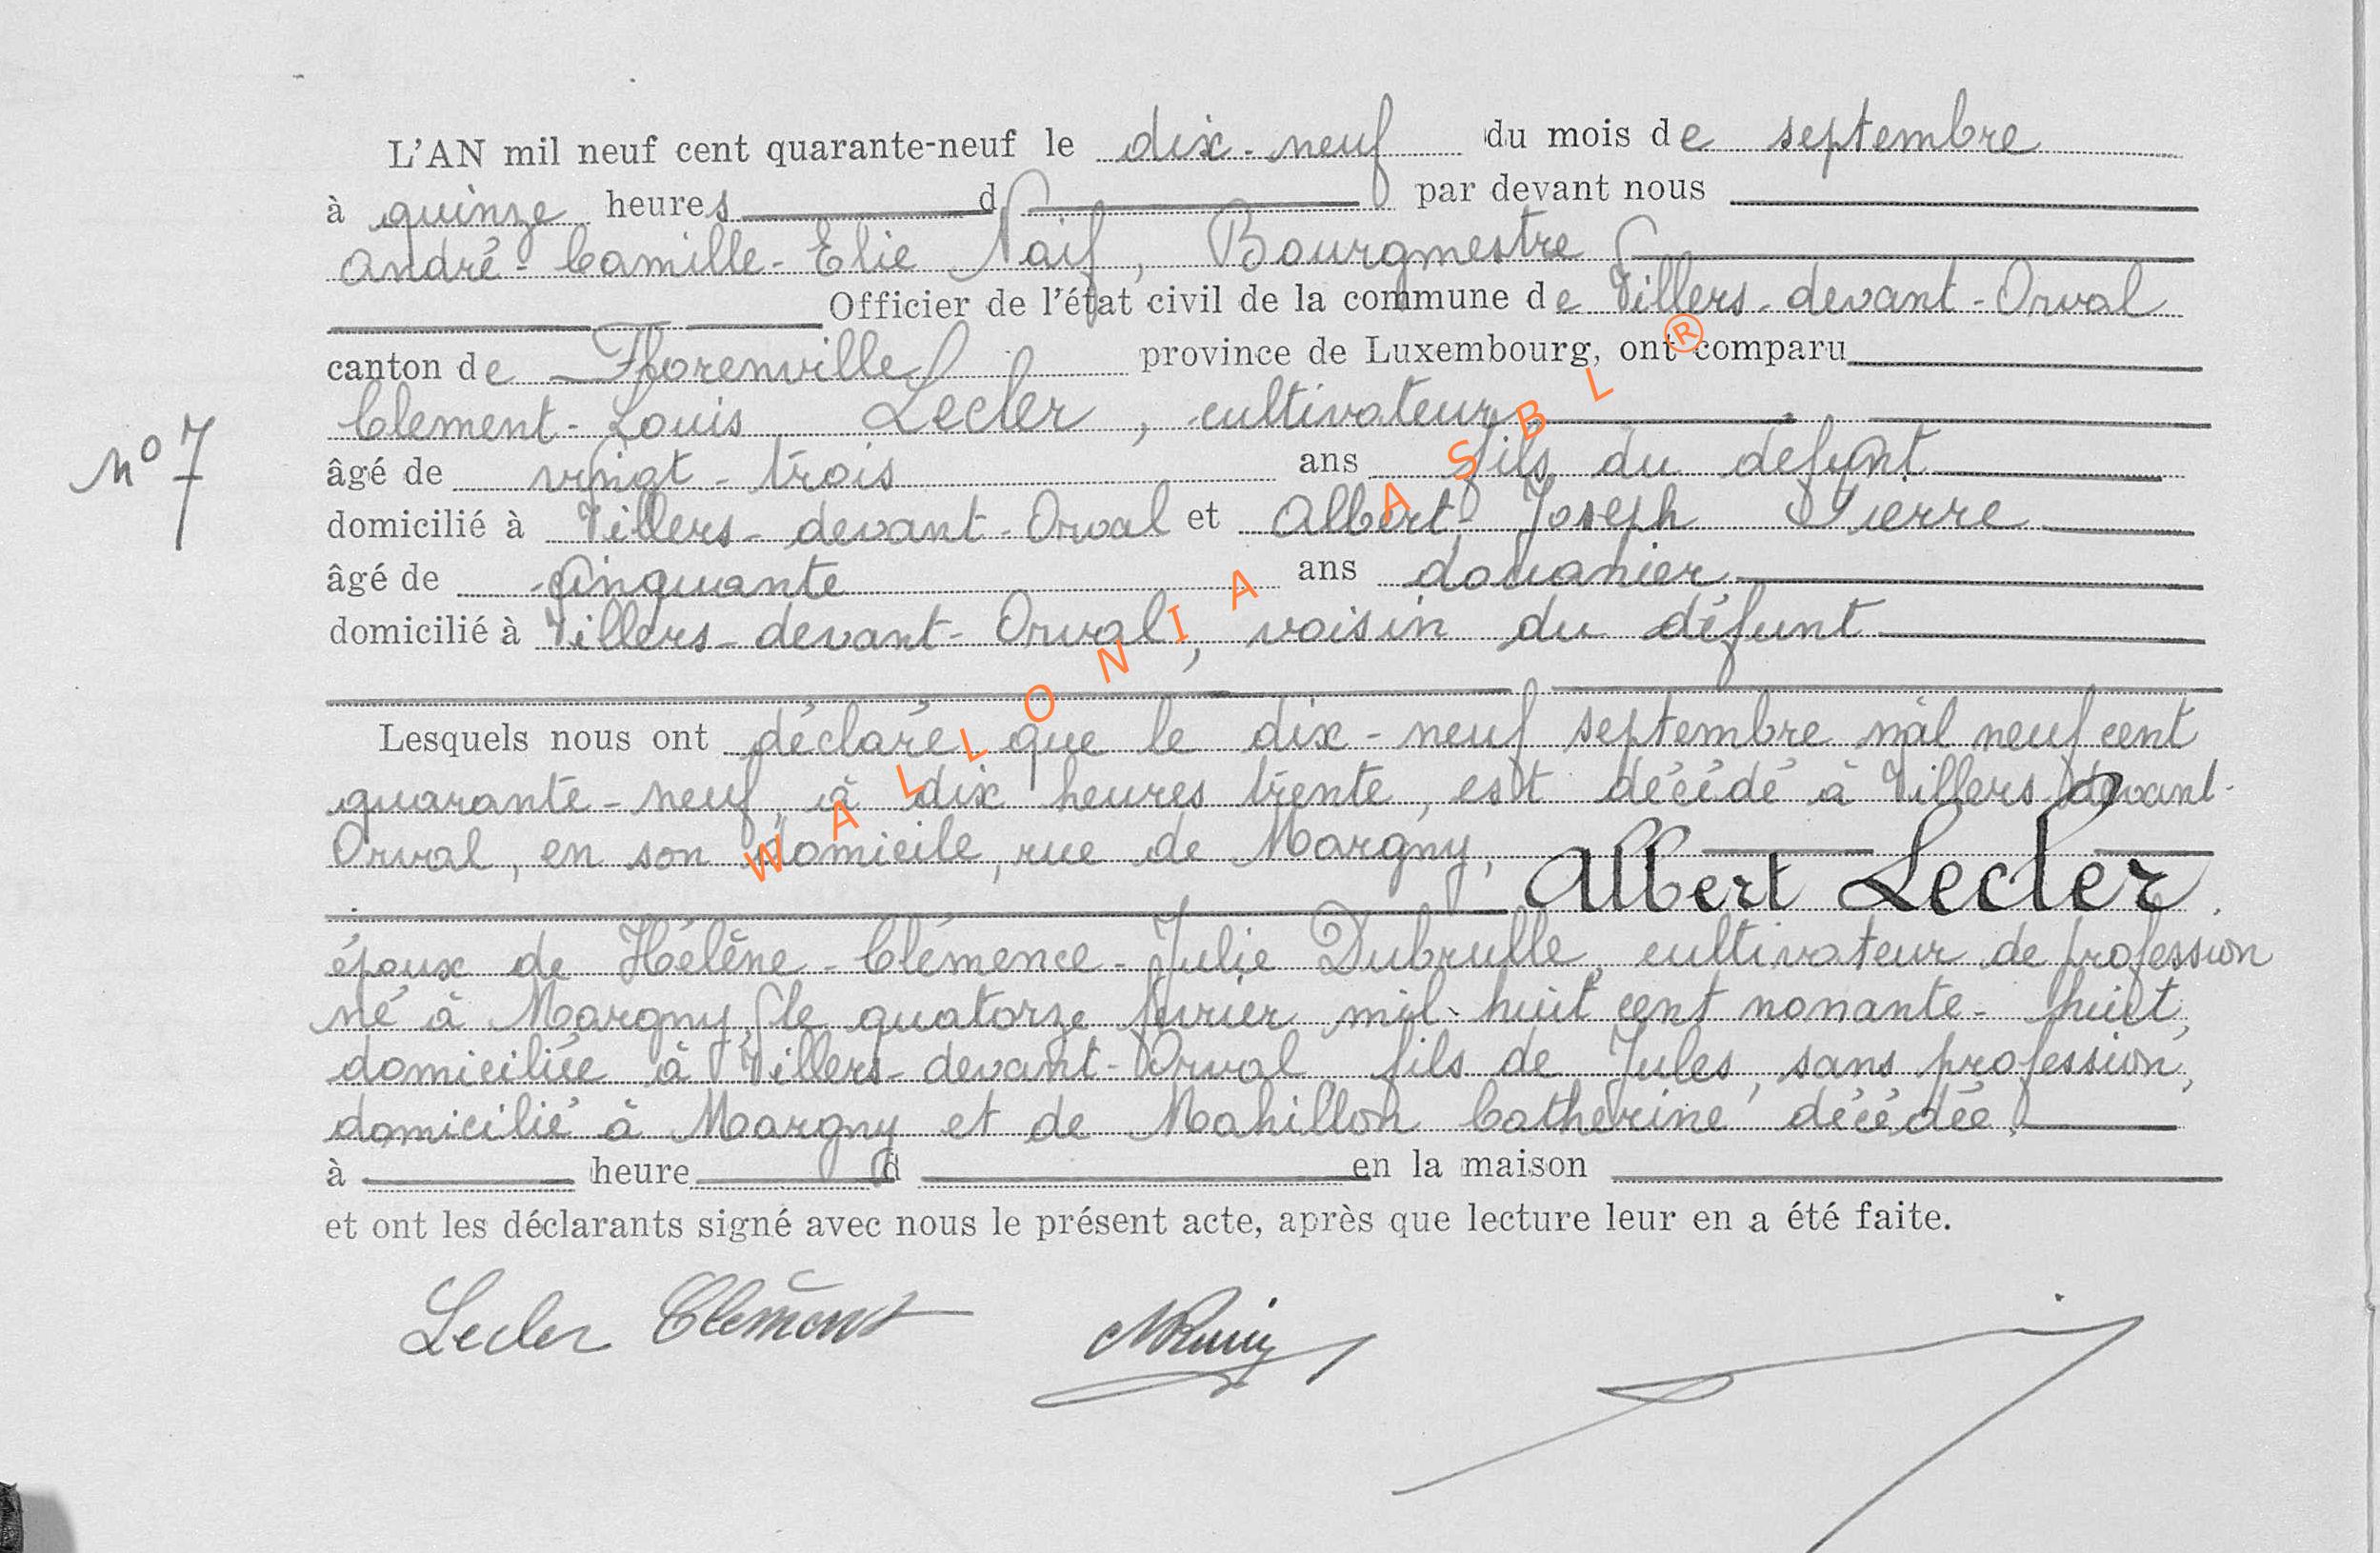 L'AN mil neuf cent quarante-neuf le dix-neuf du mois de septembre
à quinze heures d par devant nous
André-Camille-Elie Naif, Bourgmestre
Officier de l'état civil de la commune de Villers-devant-Orval
canton de Florenville province de Luxembourg, ont comparu
Clement-Louis Lecler, cultivateur
n° 7
âgé de vingt-trois ans fils du défunt
domicilié à Villers-devant-Orval et Albert-Joseph Pierre
âgé de cinquante ans douanier
domicilié à Villers-devant-Orval, voisin du défunt
Lesquels nous ont déclaré que le dix-neuf septembre mil neuf cent
quarante-neuf, à dix heures trente, est décédé à Villers-devant-
Orval, en son domicile, rue de Margny,
Albert Lecler
époux de Hélène-Clémence-Julie Dubrulle, cultivateur de profession
né à Margny, le quatorze février mil huit cent nonante-huit,
domiciliée à Villers-devant-Orval, fils de Jules, sans profession,
domicilié à Margny et de Mahillon Catherine, décédée.
à heure d en la maison
et ont les déclarants signé avec nous le présent acte, après que lecture leur en a été faite.
Lecler Clément
WALLONIA ASBL ®